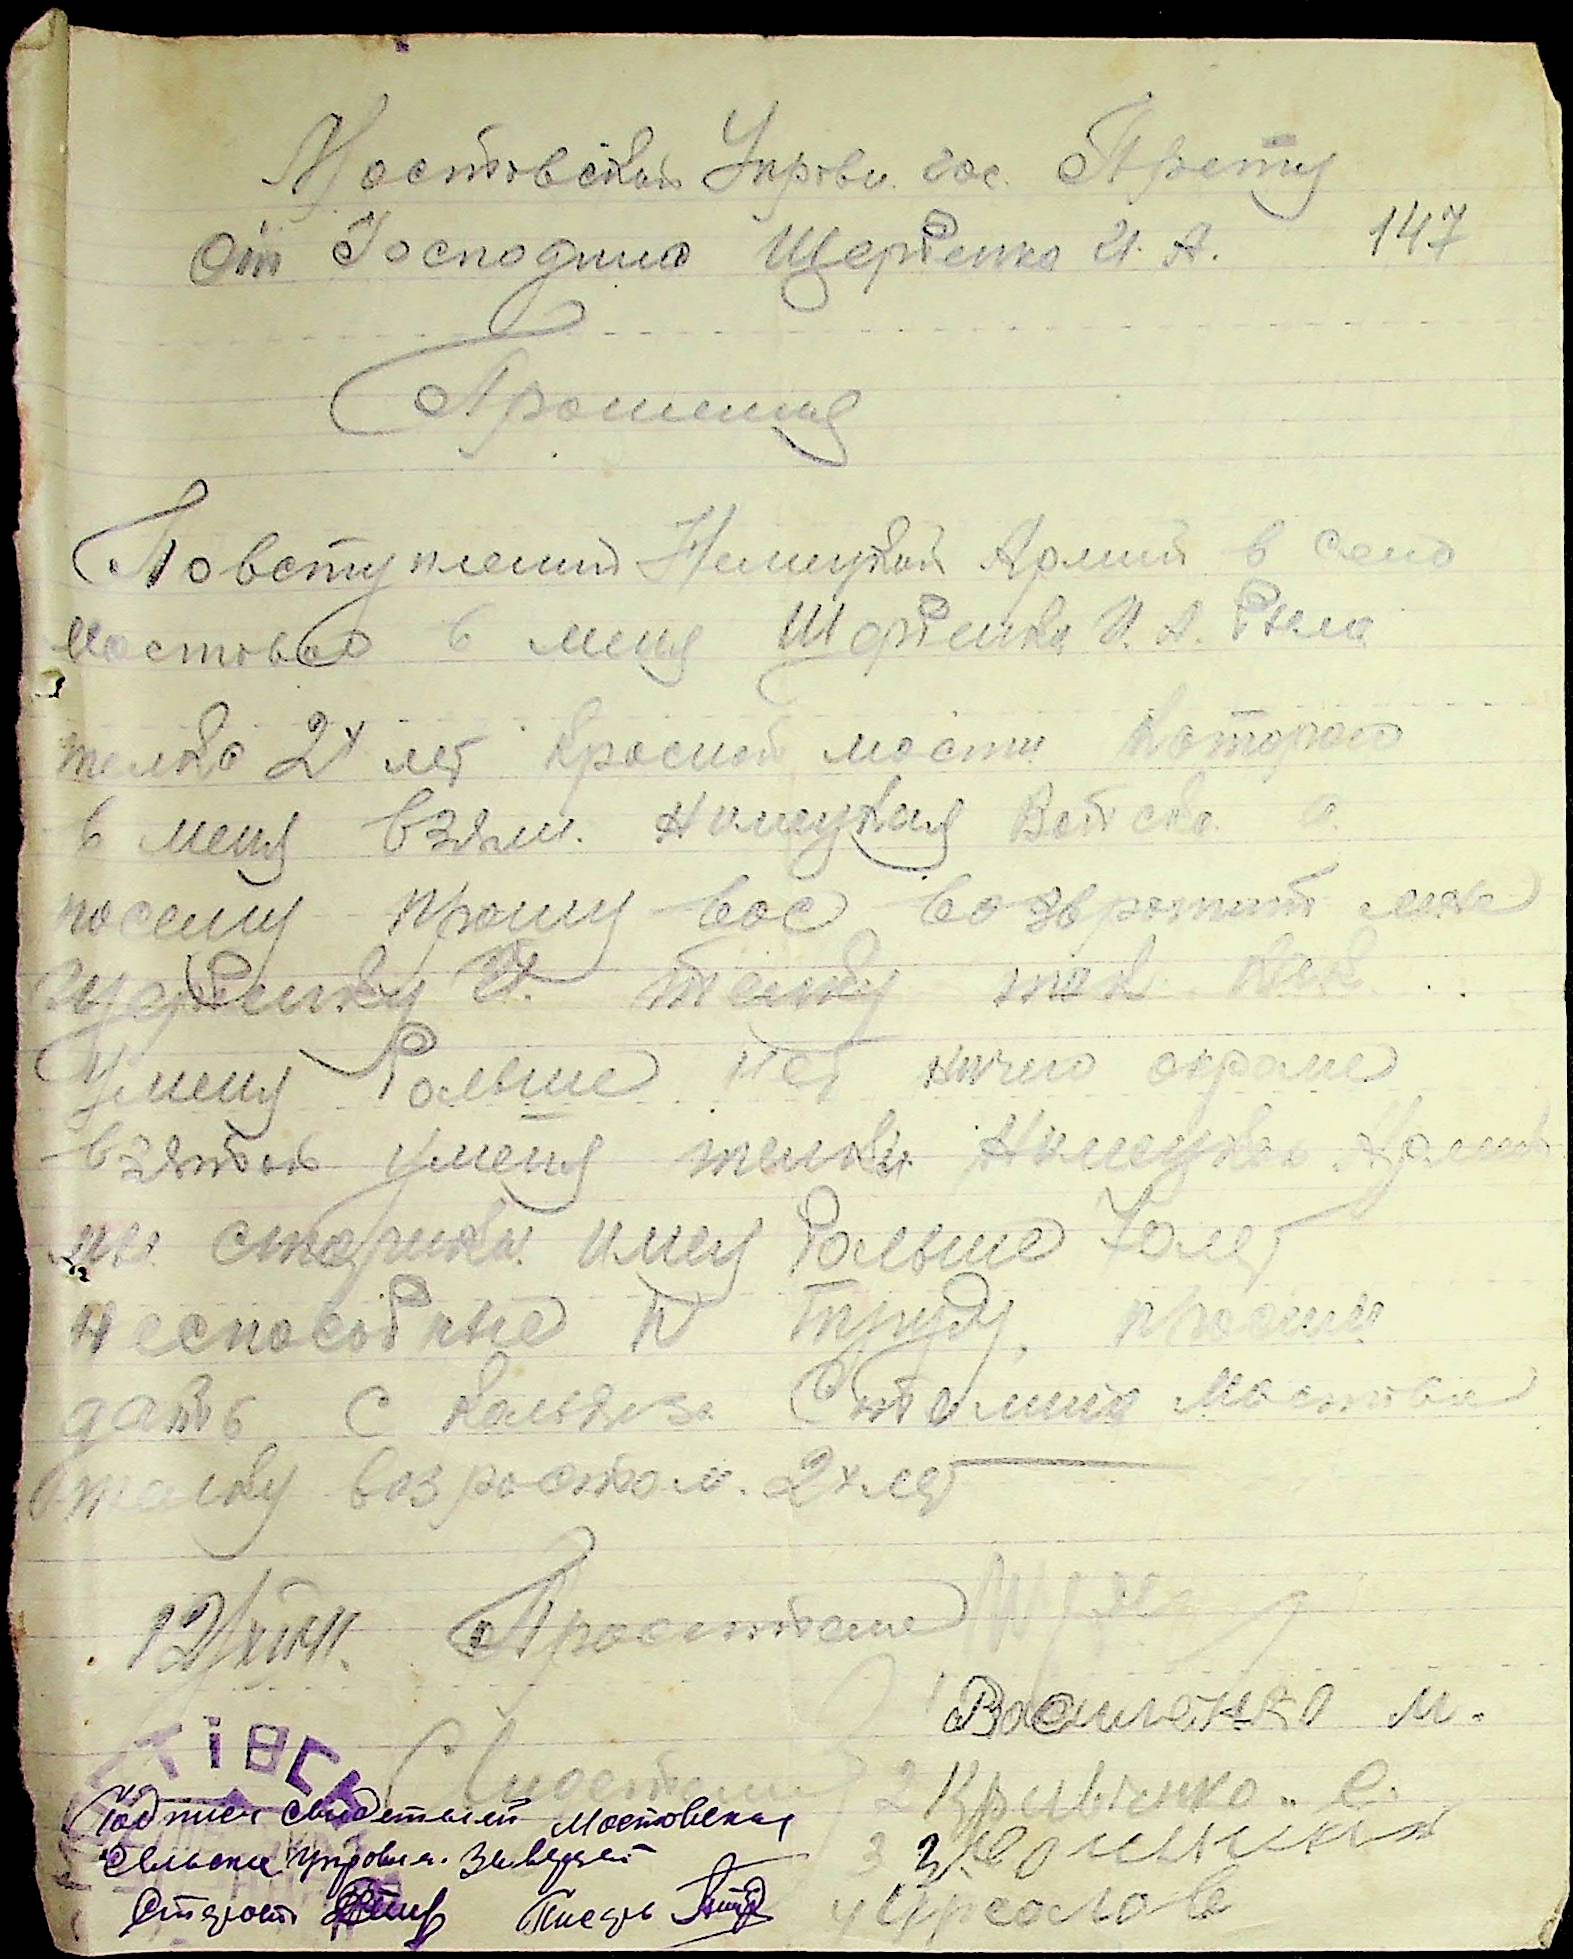 Мостовской Управи. гос. Арету
От Господина Щербенка И. А. 147
Прошения
По вступлений Немецкой Армий в село
мостовое в меня Щербенка И. А. была
телка 2х лет красной масти которою
в меня взяли. Немецкая Войска. а.
посему прошу вас возвратит мне
Щербенку И. телку так как
у меня больше нет ничего окроме
взятой у меня телки Немецкой Армий
мы старики имея больше 70 лет
неспособные к труду, просим
дать с колхоза Сталина Мостовое
телку возростом. 2х лет
12/XII 41. Проситель
1 Василенко М.
Свидетели 2 Кривенко. С.
Подписи свидетелей Мостовская
Сельска Управа. Заверяет 3
Староста Писарь 4 Урсалов
ТІВСЬ